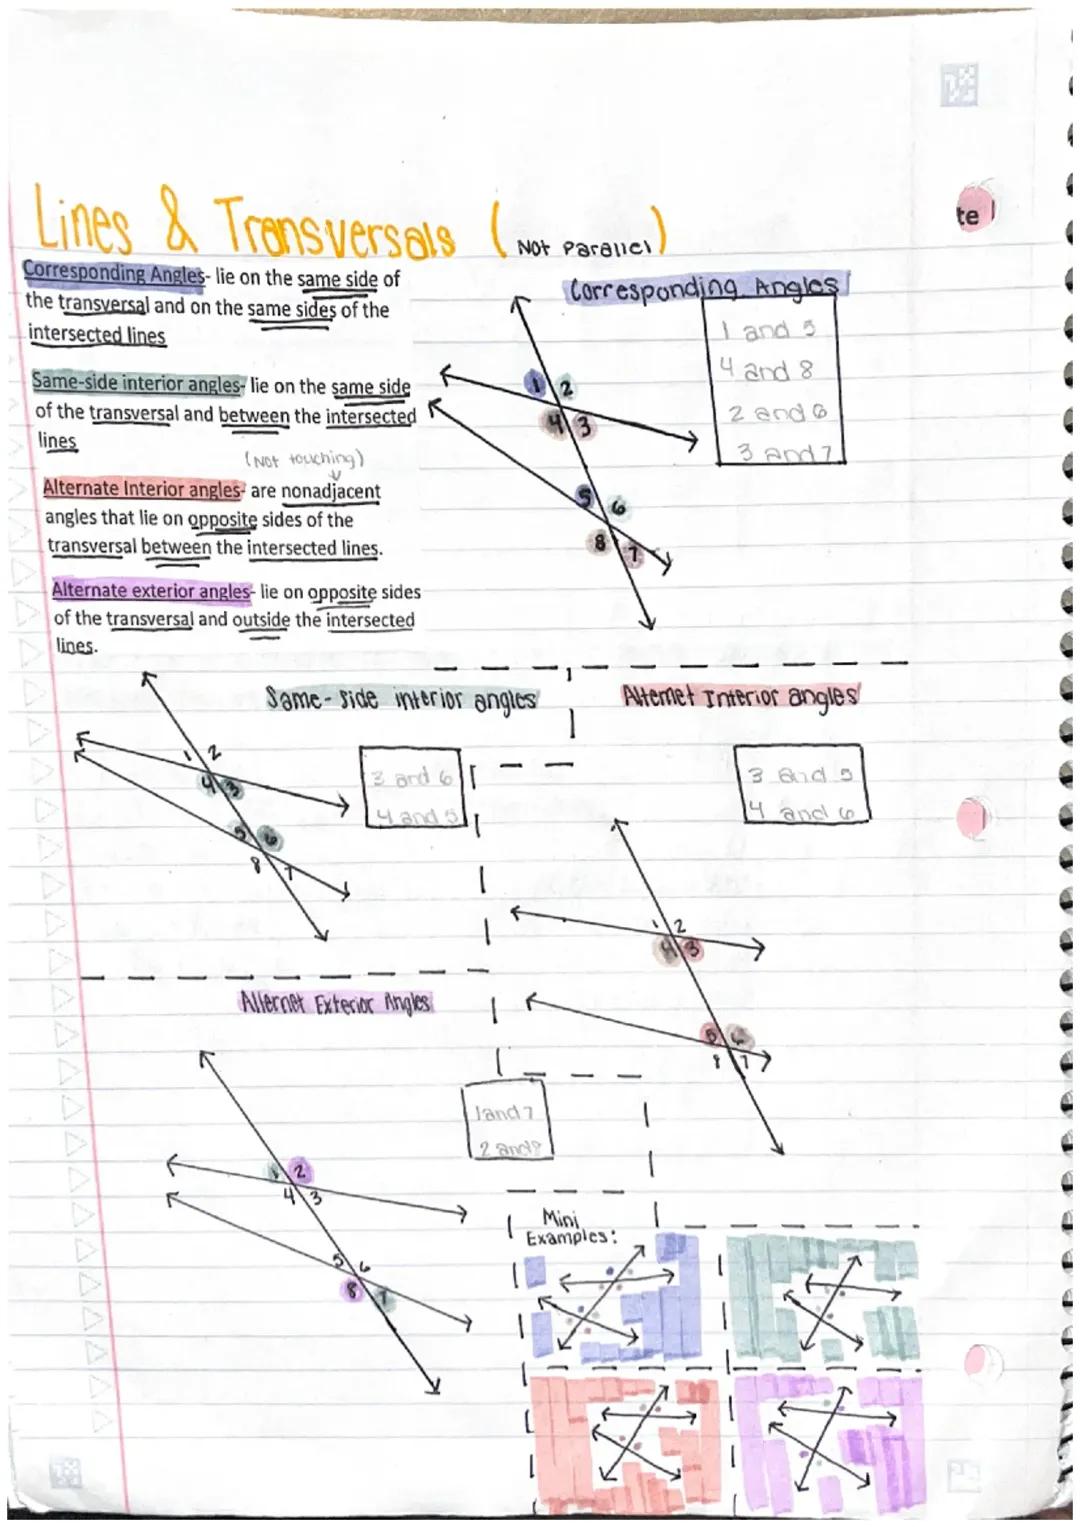 te
Lines & Transversals (Not Parallel)
Corresponding Angles- lie on the same side of
the transversal and on the same sides of the
intersected lines
Same-side interior angles- lie on the same side
of the transversal and between the intersected
lines
(Not touching)
Alternate Interior angles- are nonadjacent
angles that lie on opposite sides of the
transversal between the intersected lines.
Alternate exterior angles- lie on opposite sides
of the transversal and outside the intersected
lines.
Corresponding Angles
1 and 5
4 and 8
2 and 6
3 and 7
1 2
4 3
5 6
8 7
Same-Side interior angles
3 and 6
4 and 5
1 2
4 3
5 6
8 7
Alternet Interior angles
3 and 5
4 and 6
1 2
4 3
5 6
8 7
Alternet Exterior Angles
1 and 7
2 and 8
1 2
4 3
5 6
8 7
Mini
Examples: